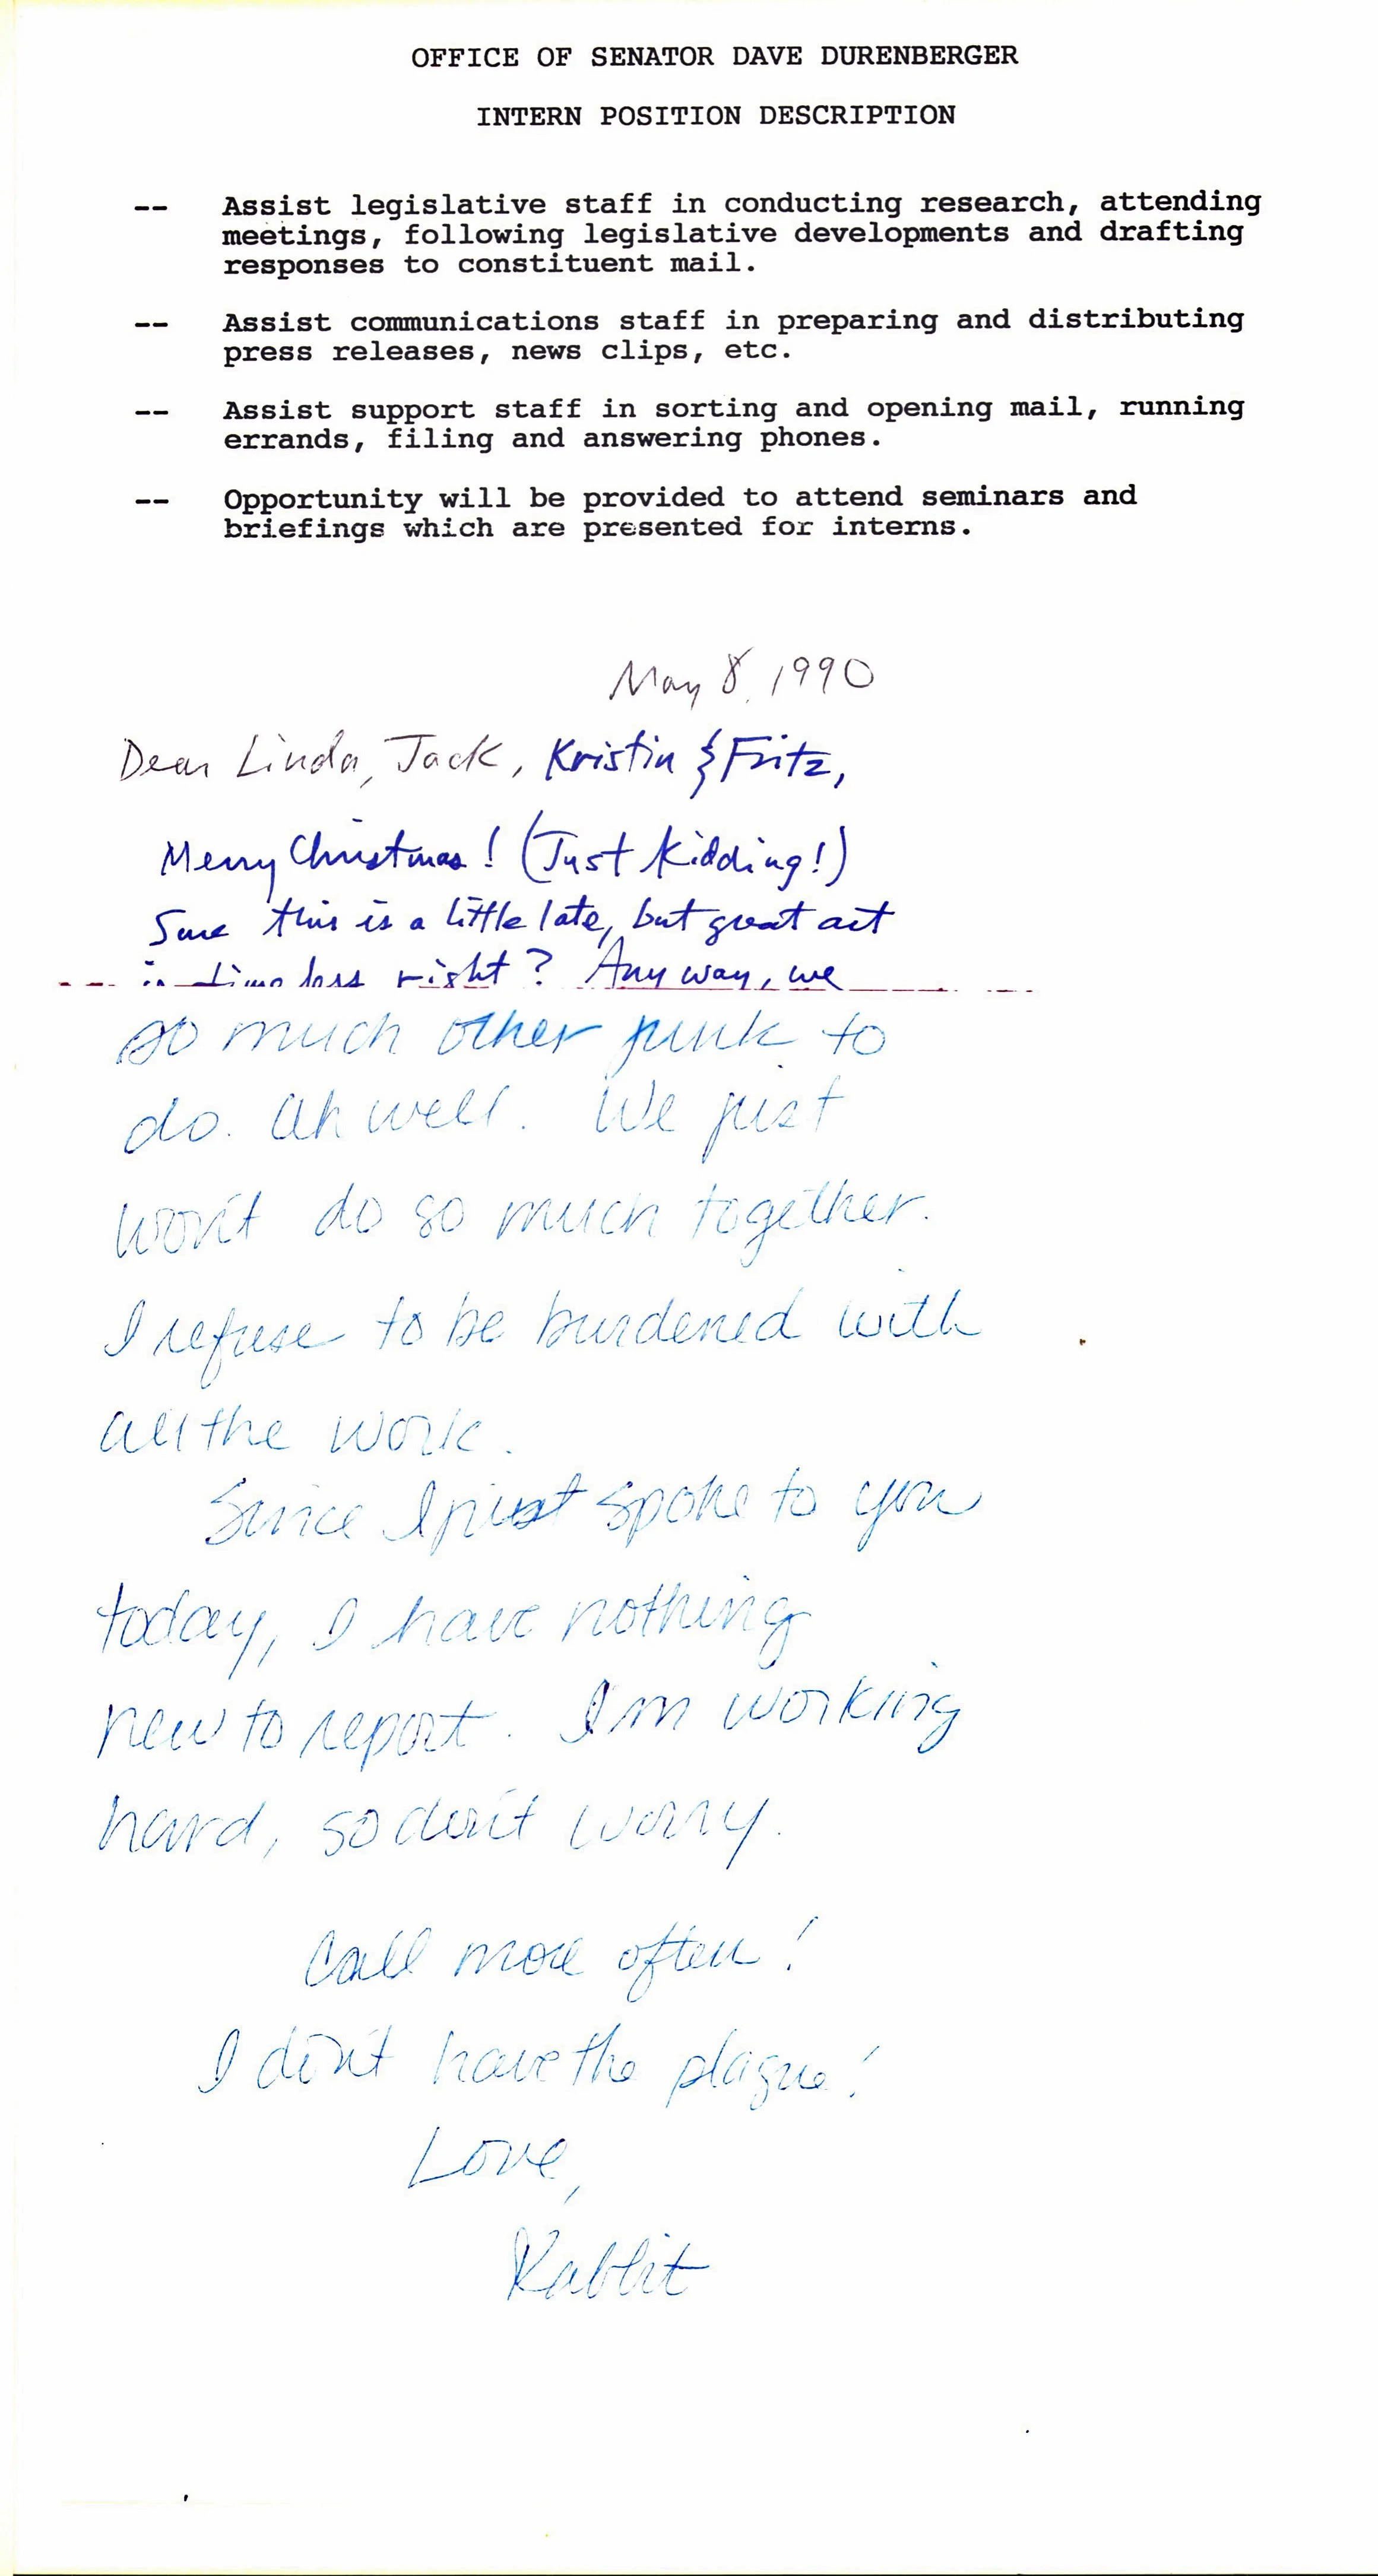 OFFICE OF SENATOR DAVE DURENBERGER
INTERN POSITION DESCRIPTION
-- Assist legislative staff in conducting research, attending
meetings, following legislative developments and drafting
responses to constituent mail.
-- Assist communications staff in preparing and distributing
press releases, news clips, etc.
-- Assist support staff in sorting and opening mail, running
errands, filing and answering phones.
-- Opportunity will be provided to attend seminars and
briefings which are presented for interns.
May 8, 1990
Dear Linda, Jack, Kristin & Fritz,
Merry Christmas! (Just Kidding!)
Sure this is a little late, but great art
is timeless right? Anyway, we
so much other junk to
do. Ah well. We just
won't do so much together.
I refuse to be burdened with
all the work.
Since I just spoke to you
today, I have nothing
new to report. I'm working
hard, so don't worry.
Call more often!
I don't have the plague!
Love,
Rabbit